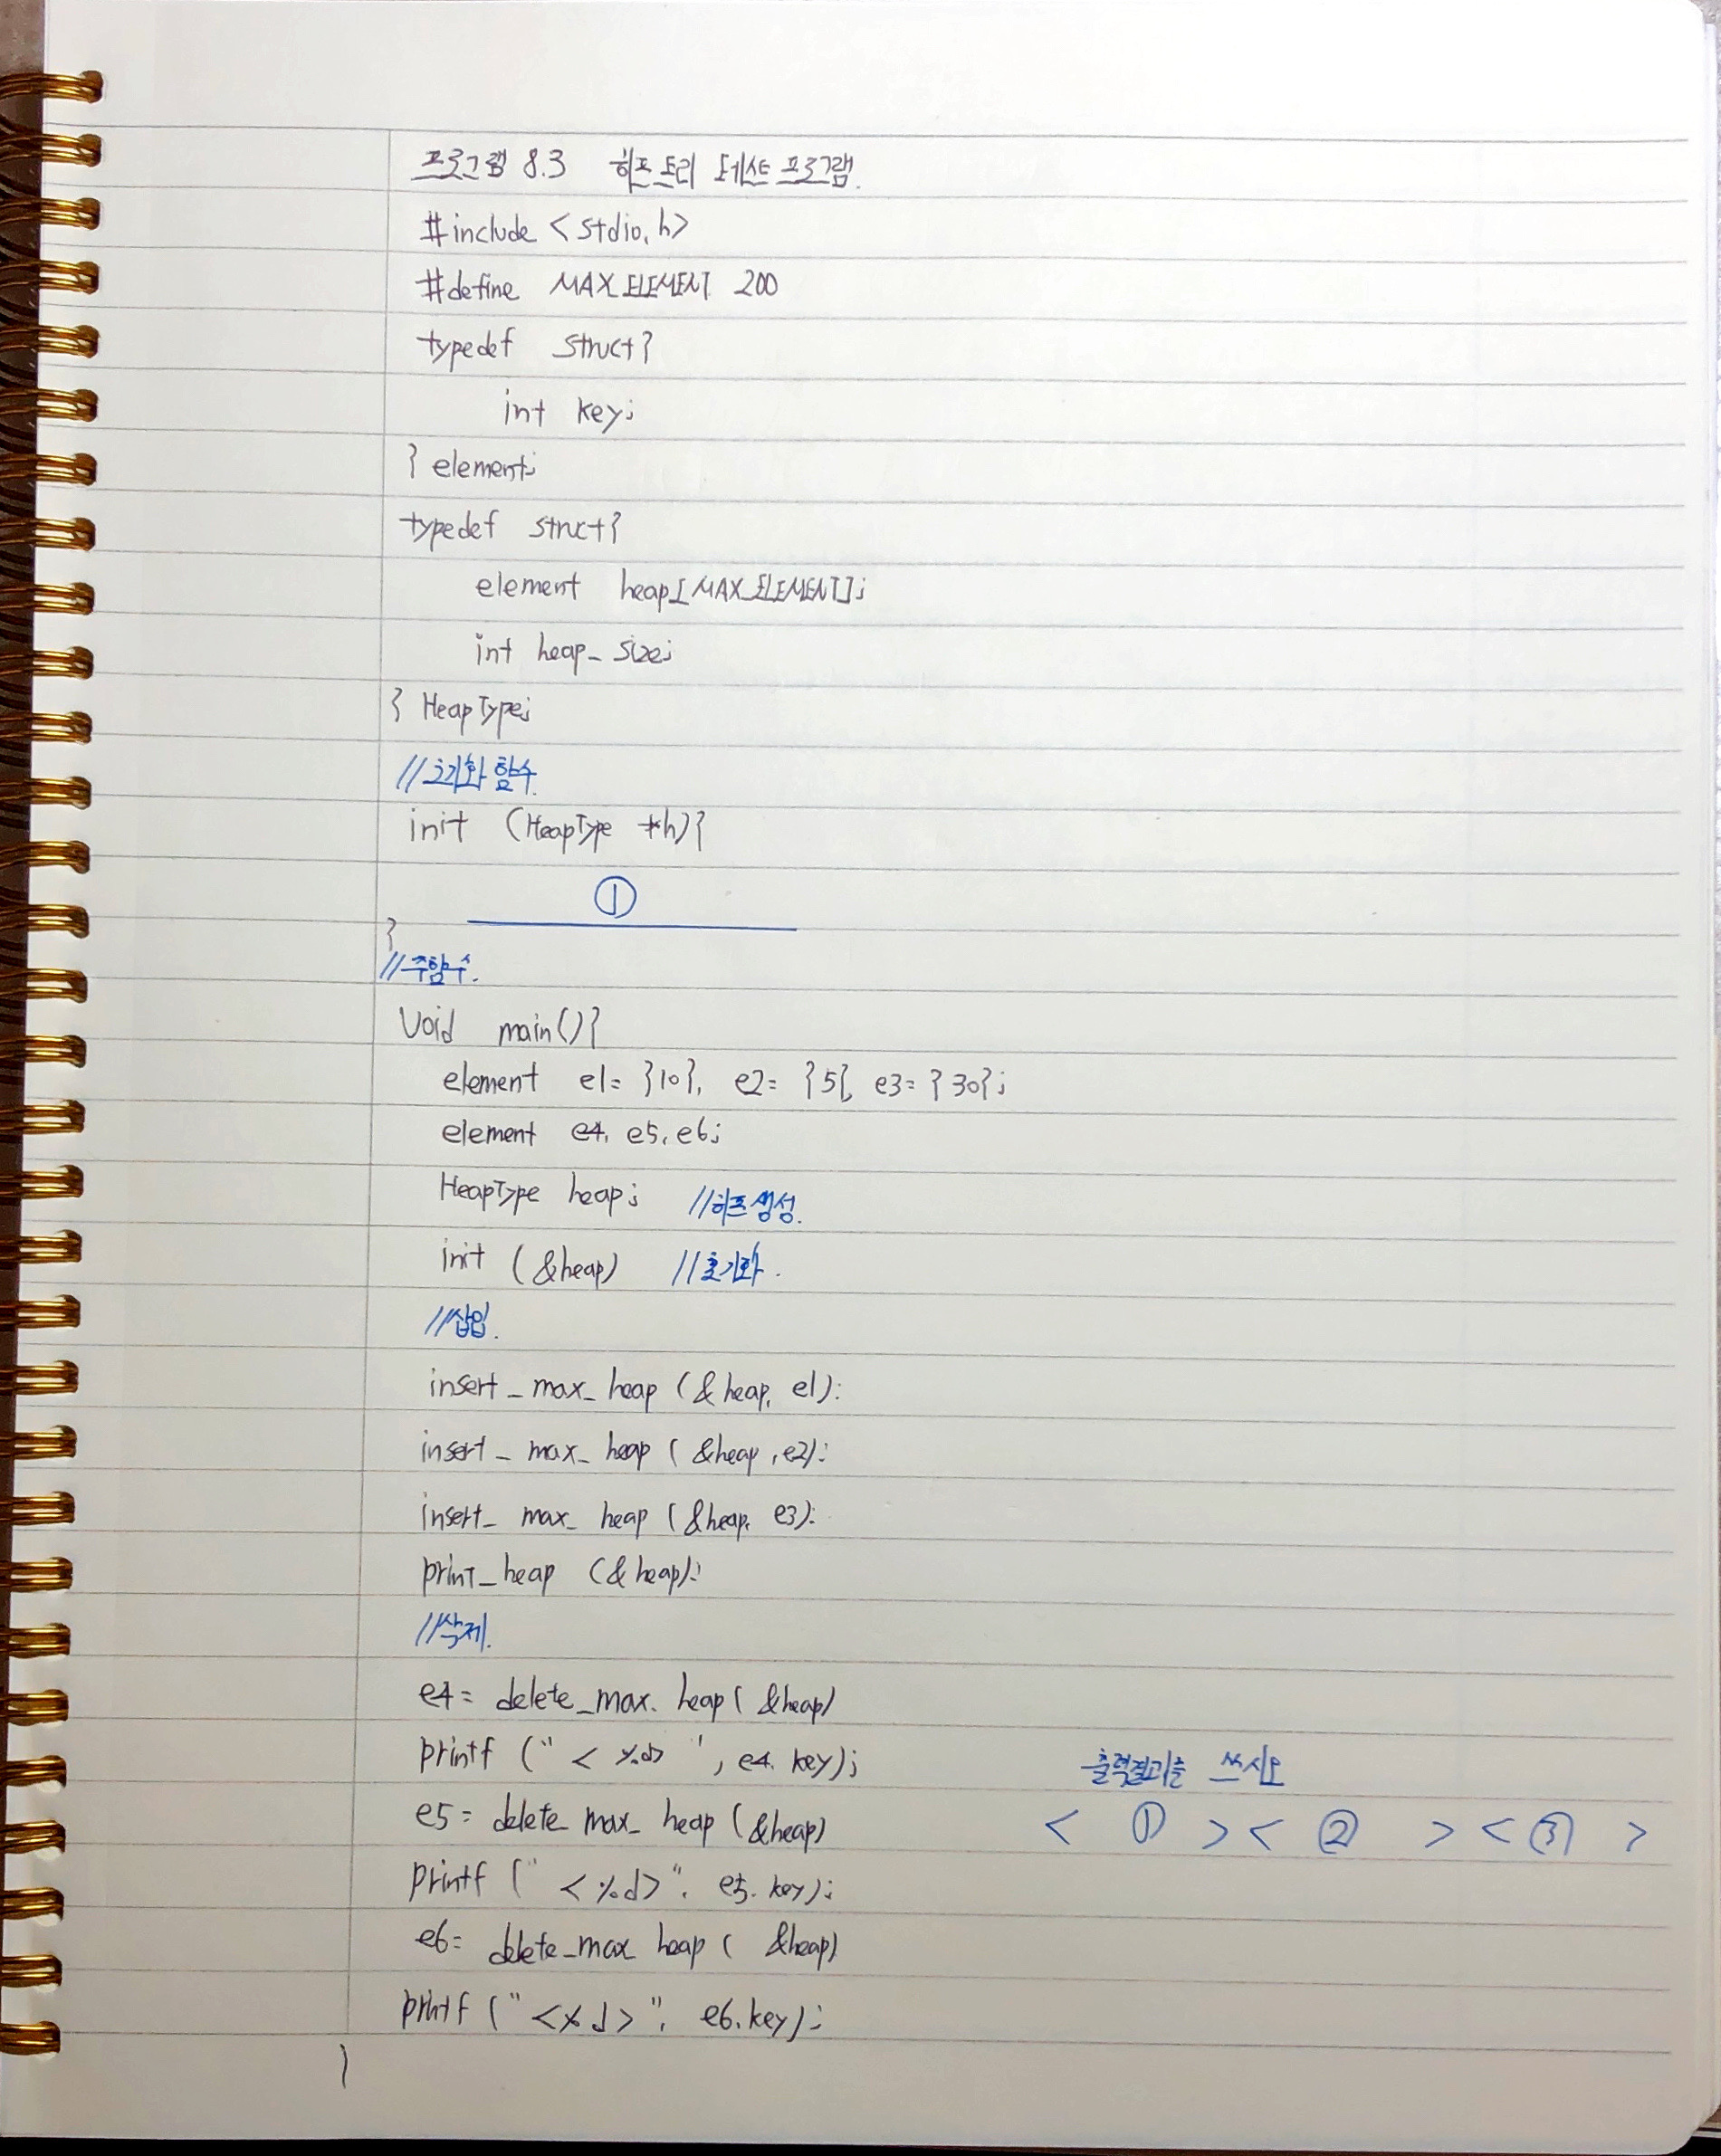 프로그램 8.3 히프 트리 테스트 프로그램.
#include <stdio.h>
#define MAX_ELEMENT 200
typedef struct{
int key;
} element;
typedef struct{
element heap[MAX_ELEMENT];
int heap_size;
} HeapType;
//초기화 함수.
init (HeapType *h){
①
}
//주함수.
Void main(){
element e1= {10}, e2= {5}, e3= {30};
element e4, e5, e6;
HeapType heap; //히프 생성.
init (&heap) //초기화.
//삽입.
insert_max_heap (&heap, e1);
insert_max_heap (&heap, e2);
insert_max_heap (&heap, e3);
print_heap (&heap);
//삭제.
e4= delete_max_heap( &heap)
printf (" < %d> ", e4. key);
출력결과를 쓰시오
e5= delete_max_heap (&heap)
< ① > < ② > < ③ >
printf (" <%d>", e5. key);
e6= delete_max heap ( &heap)
printf (" <%d> ", e6.key);
}